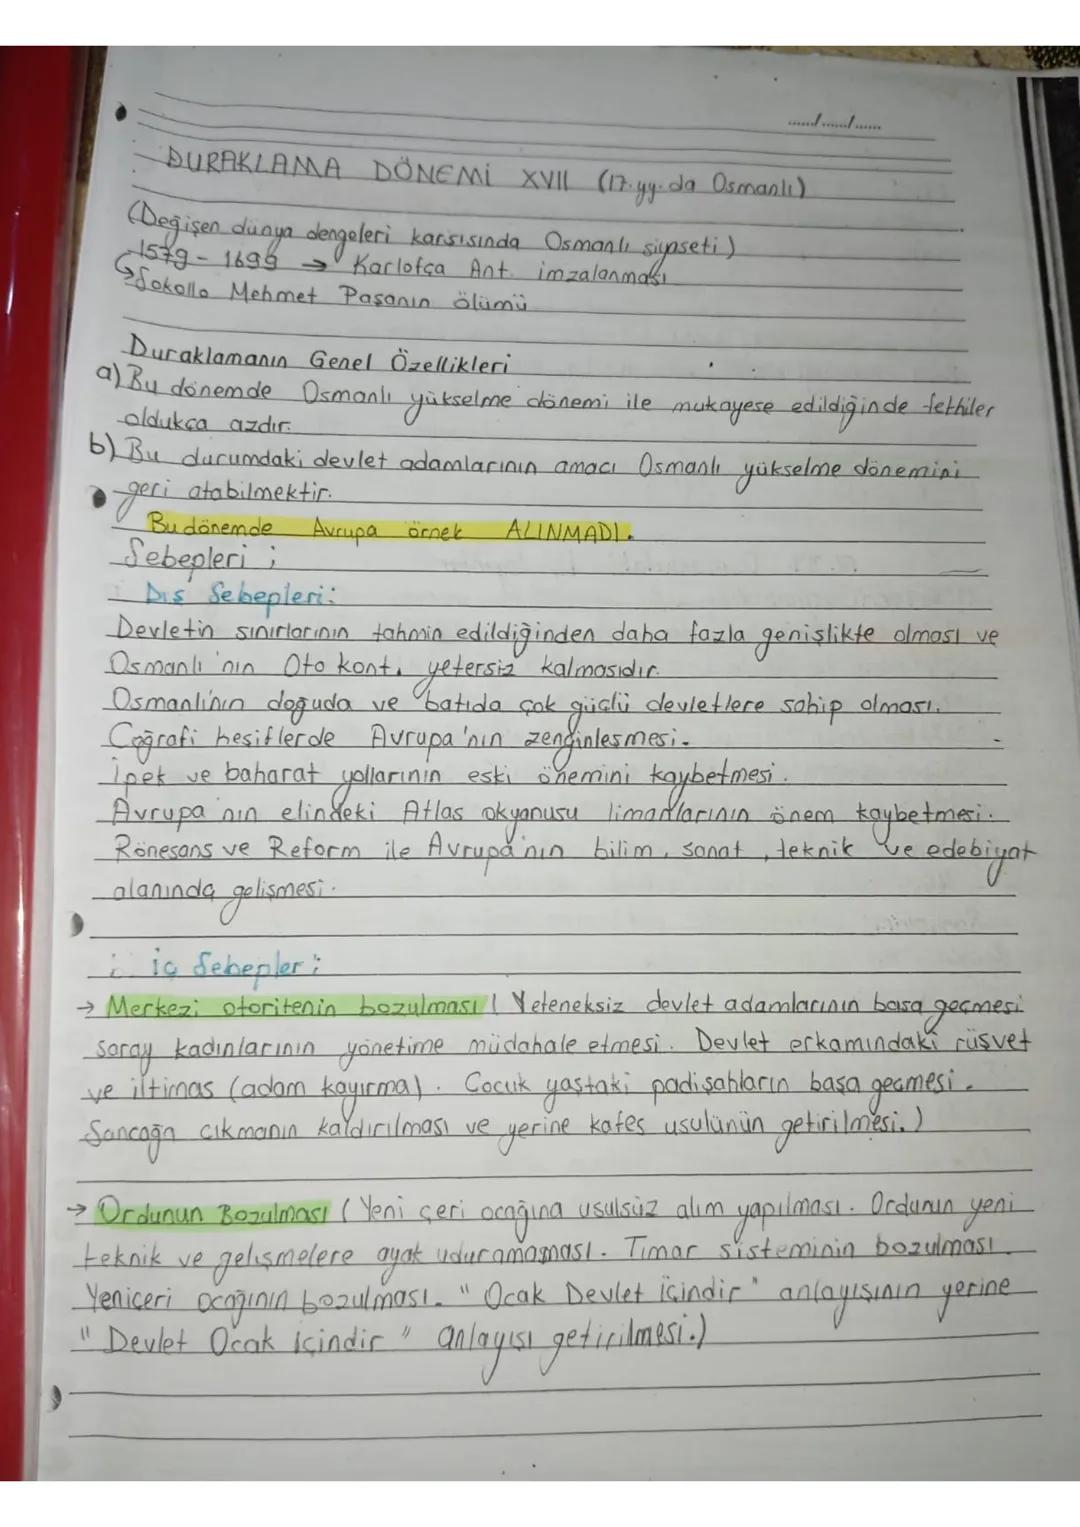 ....../....../......
DURAKLAMA DÖNEMİ XVII (17.yy.da Osmanlı)
(Değişen dünya dengeleri karsısında Osmanlı siyaseti)
1579 - 1699 → Karlofça Ant. imzalanması
↳ Sokollo Mehmet Paşanın ölümü
Duraklamanın Genel Özellikleri
a) Bu dönemde Osmanlı yükselme dönemi ile mukayese edildiğinde fethiler
oldukça azdır.
b) Bu durumdaki devlet adamlarının amacı Osmanlı yükselme dönemini
geri atabilmektir.
Bu dönemde Avrupa örnek ALINMADI.
Sebepleri ;
Dış Sebepleri:
Devletin sınırlarının tahmin edildiğinden daha fazla genişlikte olması ve
Osmanlı'nın Oto kont. yetersiz kalmasıdır.
Osmanlı'nın doğuda ve batıda çok güçlü devletlere sahip olması.
Coğrafi keşiflerde Avrupa'nın zenginleşmesi.
İpek ve baharat yollarının eski önemini kaybetmesi.
Avrupa'nın elindeki Atlas okyanusu limanlarının önem kaybetmesi.
Rönesans ve Reform ile Avrupa'nın bilim, sanat, teknik ve edebiyat
alanında gelişmesi.
iç Sebepler;
→ Merkezi otoritenin bozulması ( Yeteneksiz devlet adamlarının başa geçmesi
saray kadınlarının yönetime müdahale etmesi. Devlet erkamındaki rüşvet
ve iltimas (adam kayırma). Çocuk yaştaki padişahların başa geçmesi.
Sancağa çıkmanın kaldırılması ve yerine kafes usulünün getirilmesi.)
→ Ordunun Bozulması ( Yeni çeri ocağına usulsüz alım yapılması. Ordunun yeni
teknik ve gelişmelere ayak uduramaması. Tımar sisteminin bozulması.
Yeniçeri ocağının bozulması. " Ocak Devlet İçindir " anlayışının yerine
" Devlet Ocak içindir " anlayışı getirilmesi.)